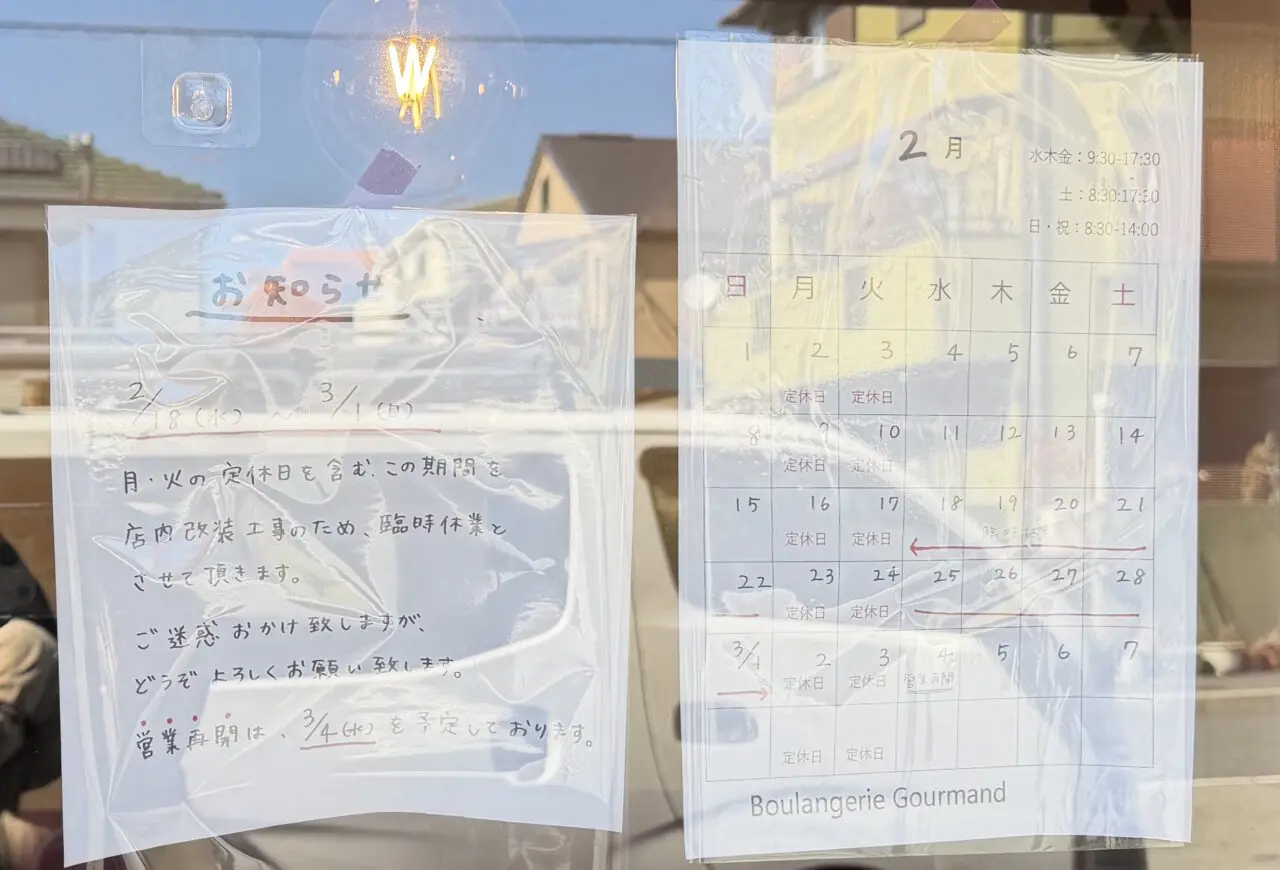 お知らせ
2/18(水) ~ 3/1(日)
月・火の定休日を含む、この期間を
店内改装工事のため、臨時休業と
させて頂きます。
ご迷惑おかけ致しますが、
どうぞよろしくお願い致します。
営業再開は、3/4(水)を予定しております。
2月
水木金:9:30-17:30
土:8:30:17:30
日・祝:8:30-14:00
日 月 火 水 木 金 土
1 2 3 4 5 6 7
定休日 定休日
8 9 10 11 12 13 14
定休日 定休日
15 16 17 18 19 20 21
定休日 定休日 臨時休業
22 23 24 25 26 27 28
定休日 定休日
3/1 2 3 4 5 6 7
定休日 定休日 営業再開
定休日 定休日
Boulangerie Gourmand